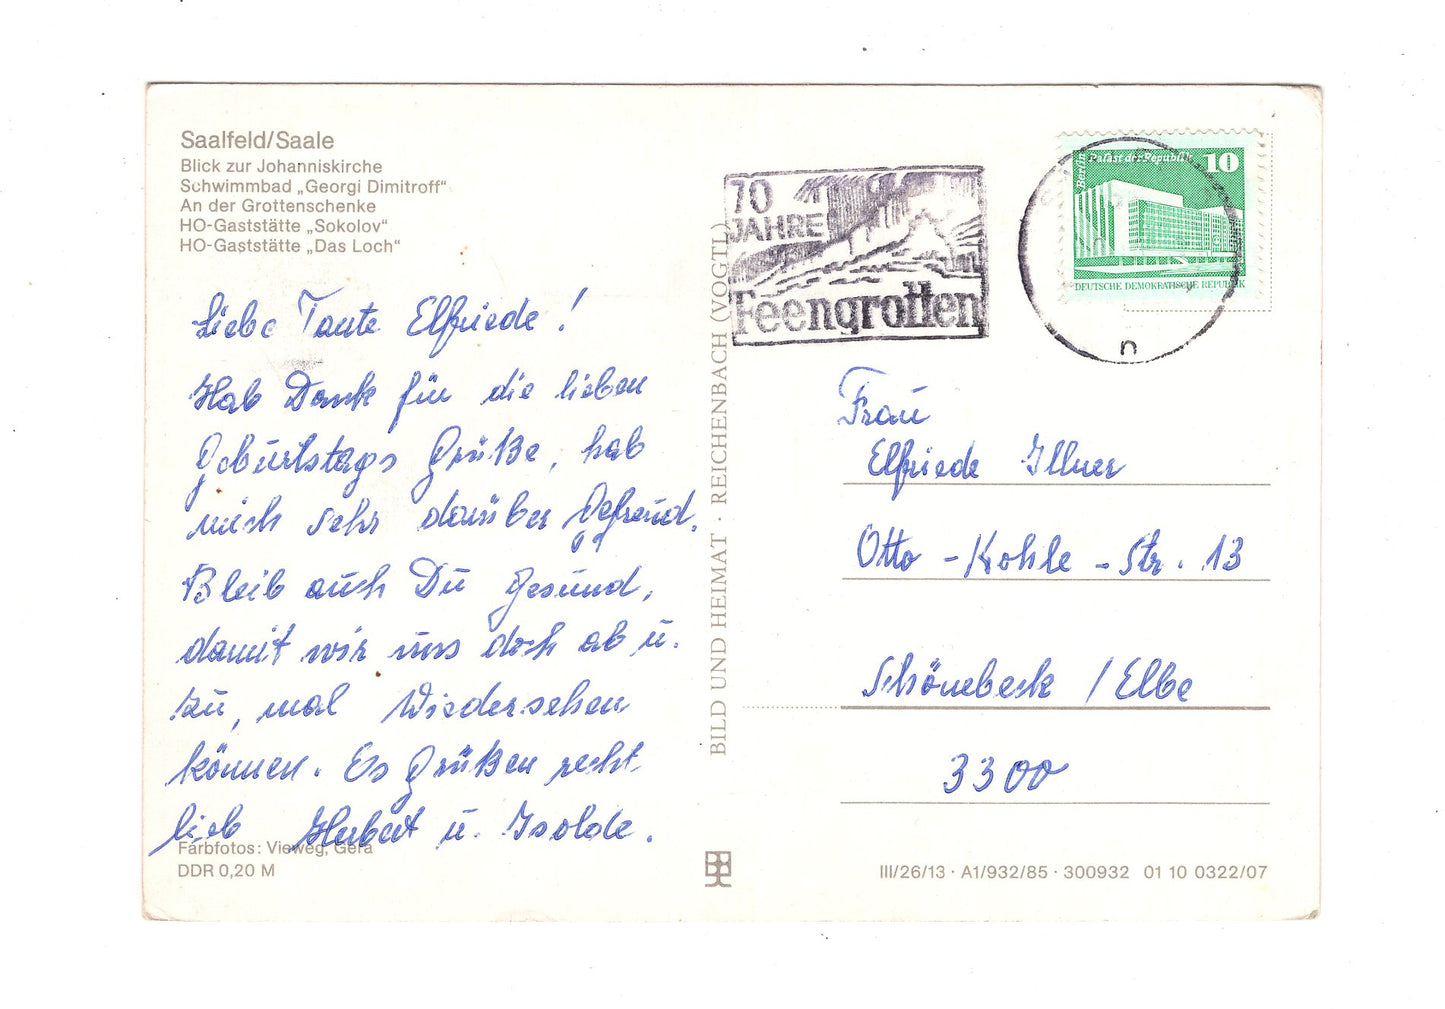 Saalfeld/Saale
Blick zur Johanniskirche
Schwimmbad „Georgi Dimitroff“
An der Grottenschenke
HO-Gaststätte „Sokolov“
HO-Gaststätte „Das Loch“
Liebe Tante Elfriede !
Hab Dank für die lieben
Geburtstags Grüße, hab
mich sehr darüber Gefreud.
Bleib auch Du Gesund,
damit wir uns doch ab u.
zu, mal Wiedersehen
können. Es Grüßen recht
lieb Herbert u. Isolde.
Farbfotos: Vieweg, Gera
DDR 0,20 M
BILD UND HEIMAT · REICHENBACH (VOGTL)
70
JAHRE
Feengrotten
Berlin
Palast der Republik
10
DEUTSCHE DEMOKRATISCHE REPUBLIK
n
Frau
Elfriede Illner
Otto-Kohle-Str. 13
Schönebeck /Elbe
3300
III/26/13 · A1/932/85 · 300932 01 10 0322/07